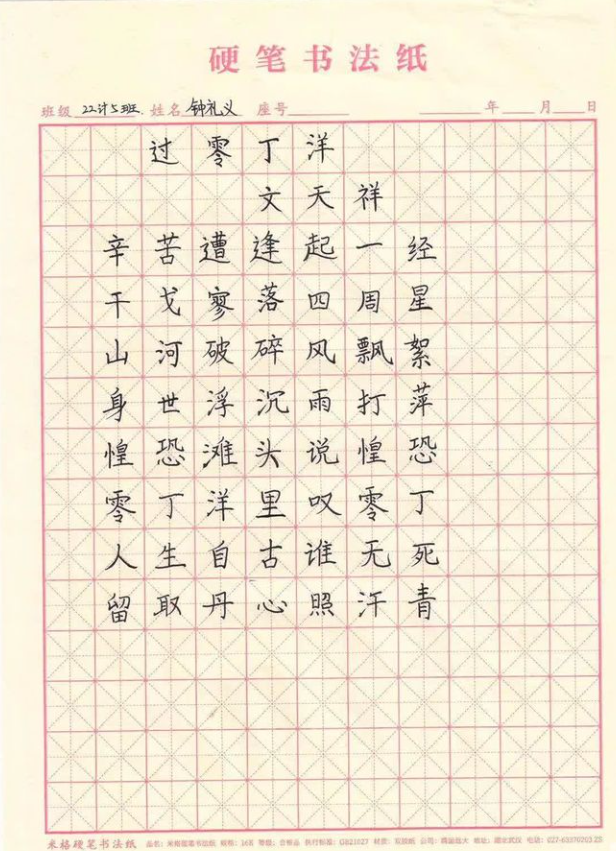 硬笔书法纸
班级 22计5班. 姓名 钟礼义 座号 年 月 日
过零丁洋
文天祥
辛苦遭逢起一经
干戈寥落四周星
山河破碎风飘絮
身世浮沉雨打萍
惶恐滩头说惶恐
零丁洋里叹零丁
人生自古谁无死
留取丹心照汗青
米格硬笔书法纸 品名：米格硬笔书法纸 规格：16K